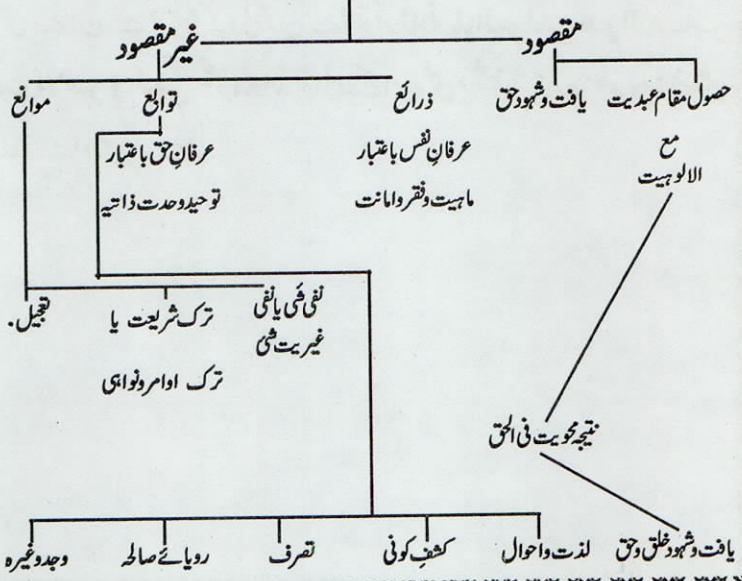 مقصود
غیر مقصود
حصول مقام عبدیت
یافت و شہود حق
ذرائع
توابع
موانع
مع
الالوہیت
عرفانِ نفس باعتبار
ماہیت و فقر و امانت
عرفانِ حق باعتبار
توحید وحدت ذاتیہ
نفی شئی یا نفی
غیریت شئ
ترک شریعت یا
ترک اوامر و نواہی
تعجیل۔
نتیجہ محویت فی الحق
یافت و شہود خلق و حق
لذت و احوال
کشفِ کونی
تصرف
رویائے صالحہ
وجد وغیرہ